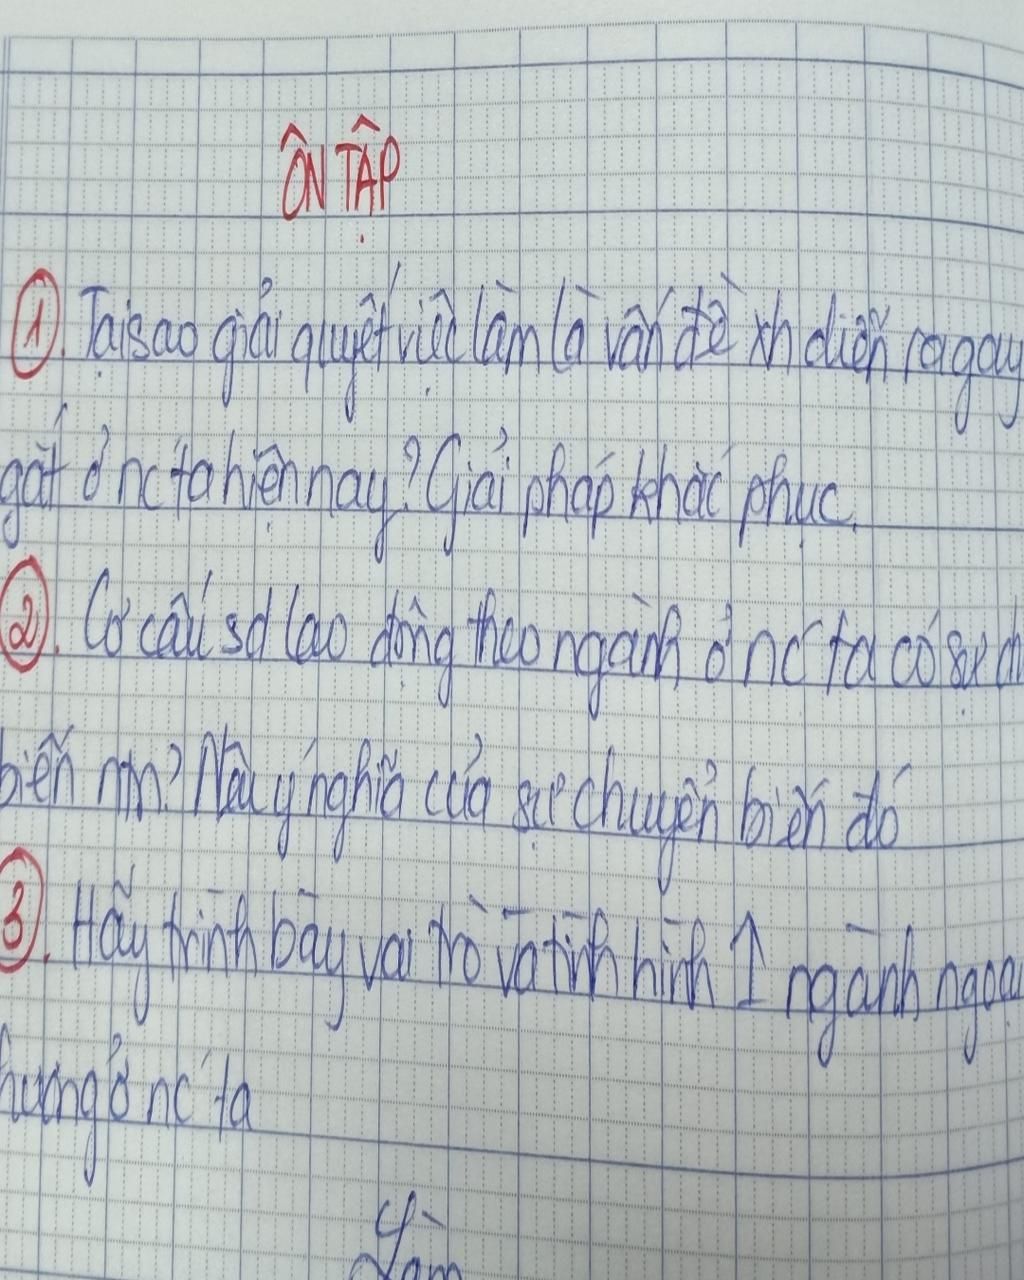 ÔN TẬP
1. Tại sao giải quyết việc làm là vấn đề xh diễn ra gay
gắt ở nc ta hiện nay? Giải pháp khắc phục.
2. Cơ cấu sd lao động theo ngành ở nc ta có sự ch
biến ntn? Nêu ý nghĩa của sự chuyển biến đó
3. Hãy trình bày vai trò và tình hình ↑ ngành ngoại
thương ở nc ta
Làm